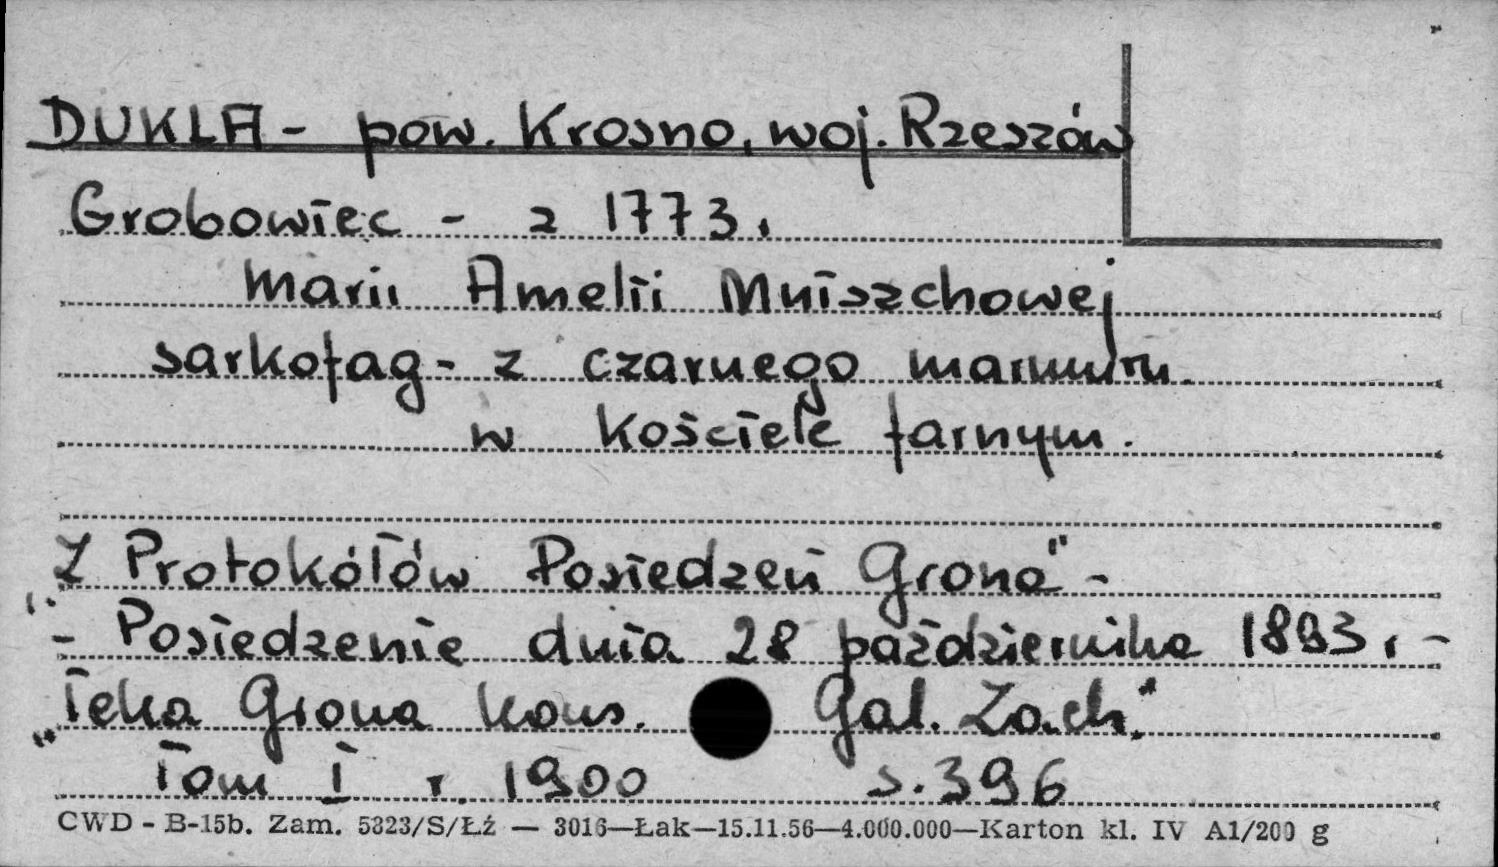 DUKLA - pow. Krosno, woj. Rzeszów
Grobowiec - z 1773.
Marii Amelii Mniszchowej
sarkofag - z czarnego marmuru.
w kościele farnym.
Z Protokółów Posiedzeń Grona" -
" - Posiedzenie dnia 28 października 1893. -
"Teka Grona Kons. Gal. Zach."
Tom I r. 1900 s. 396
CWD - B-15b. Zam. 5323/S/Łź — 3016—Łak—15.11.56—4.000.000—Karton kl. IV A1/200 g